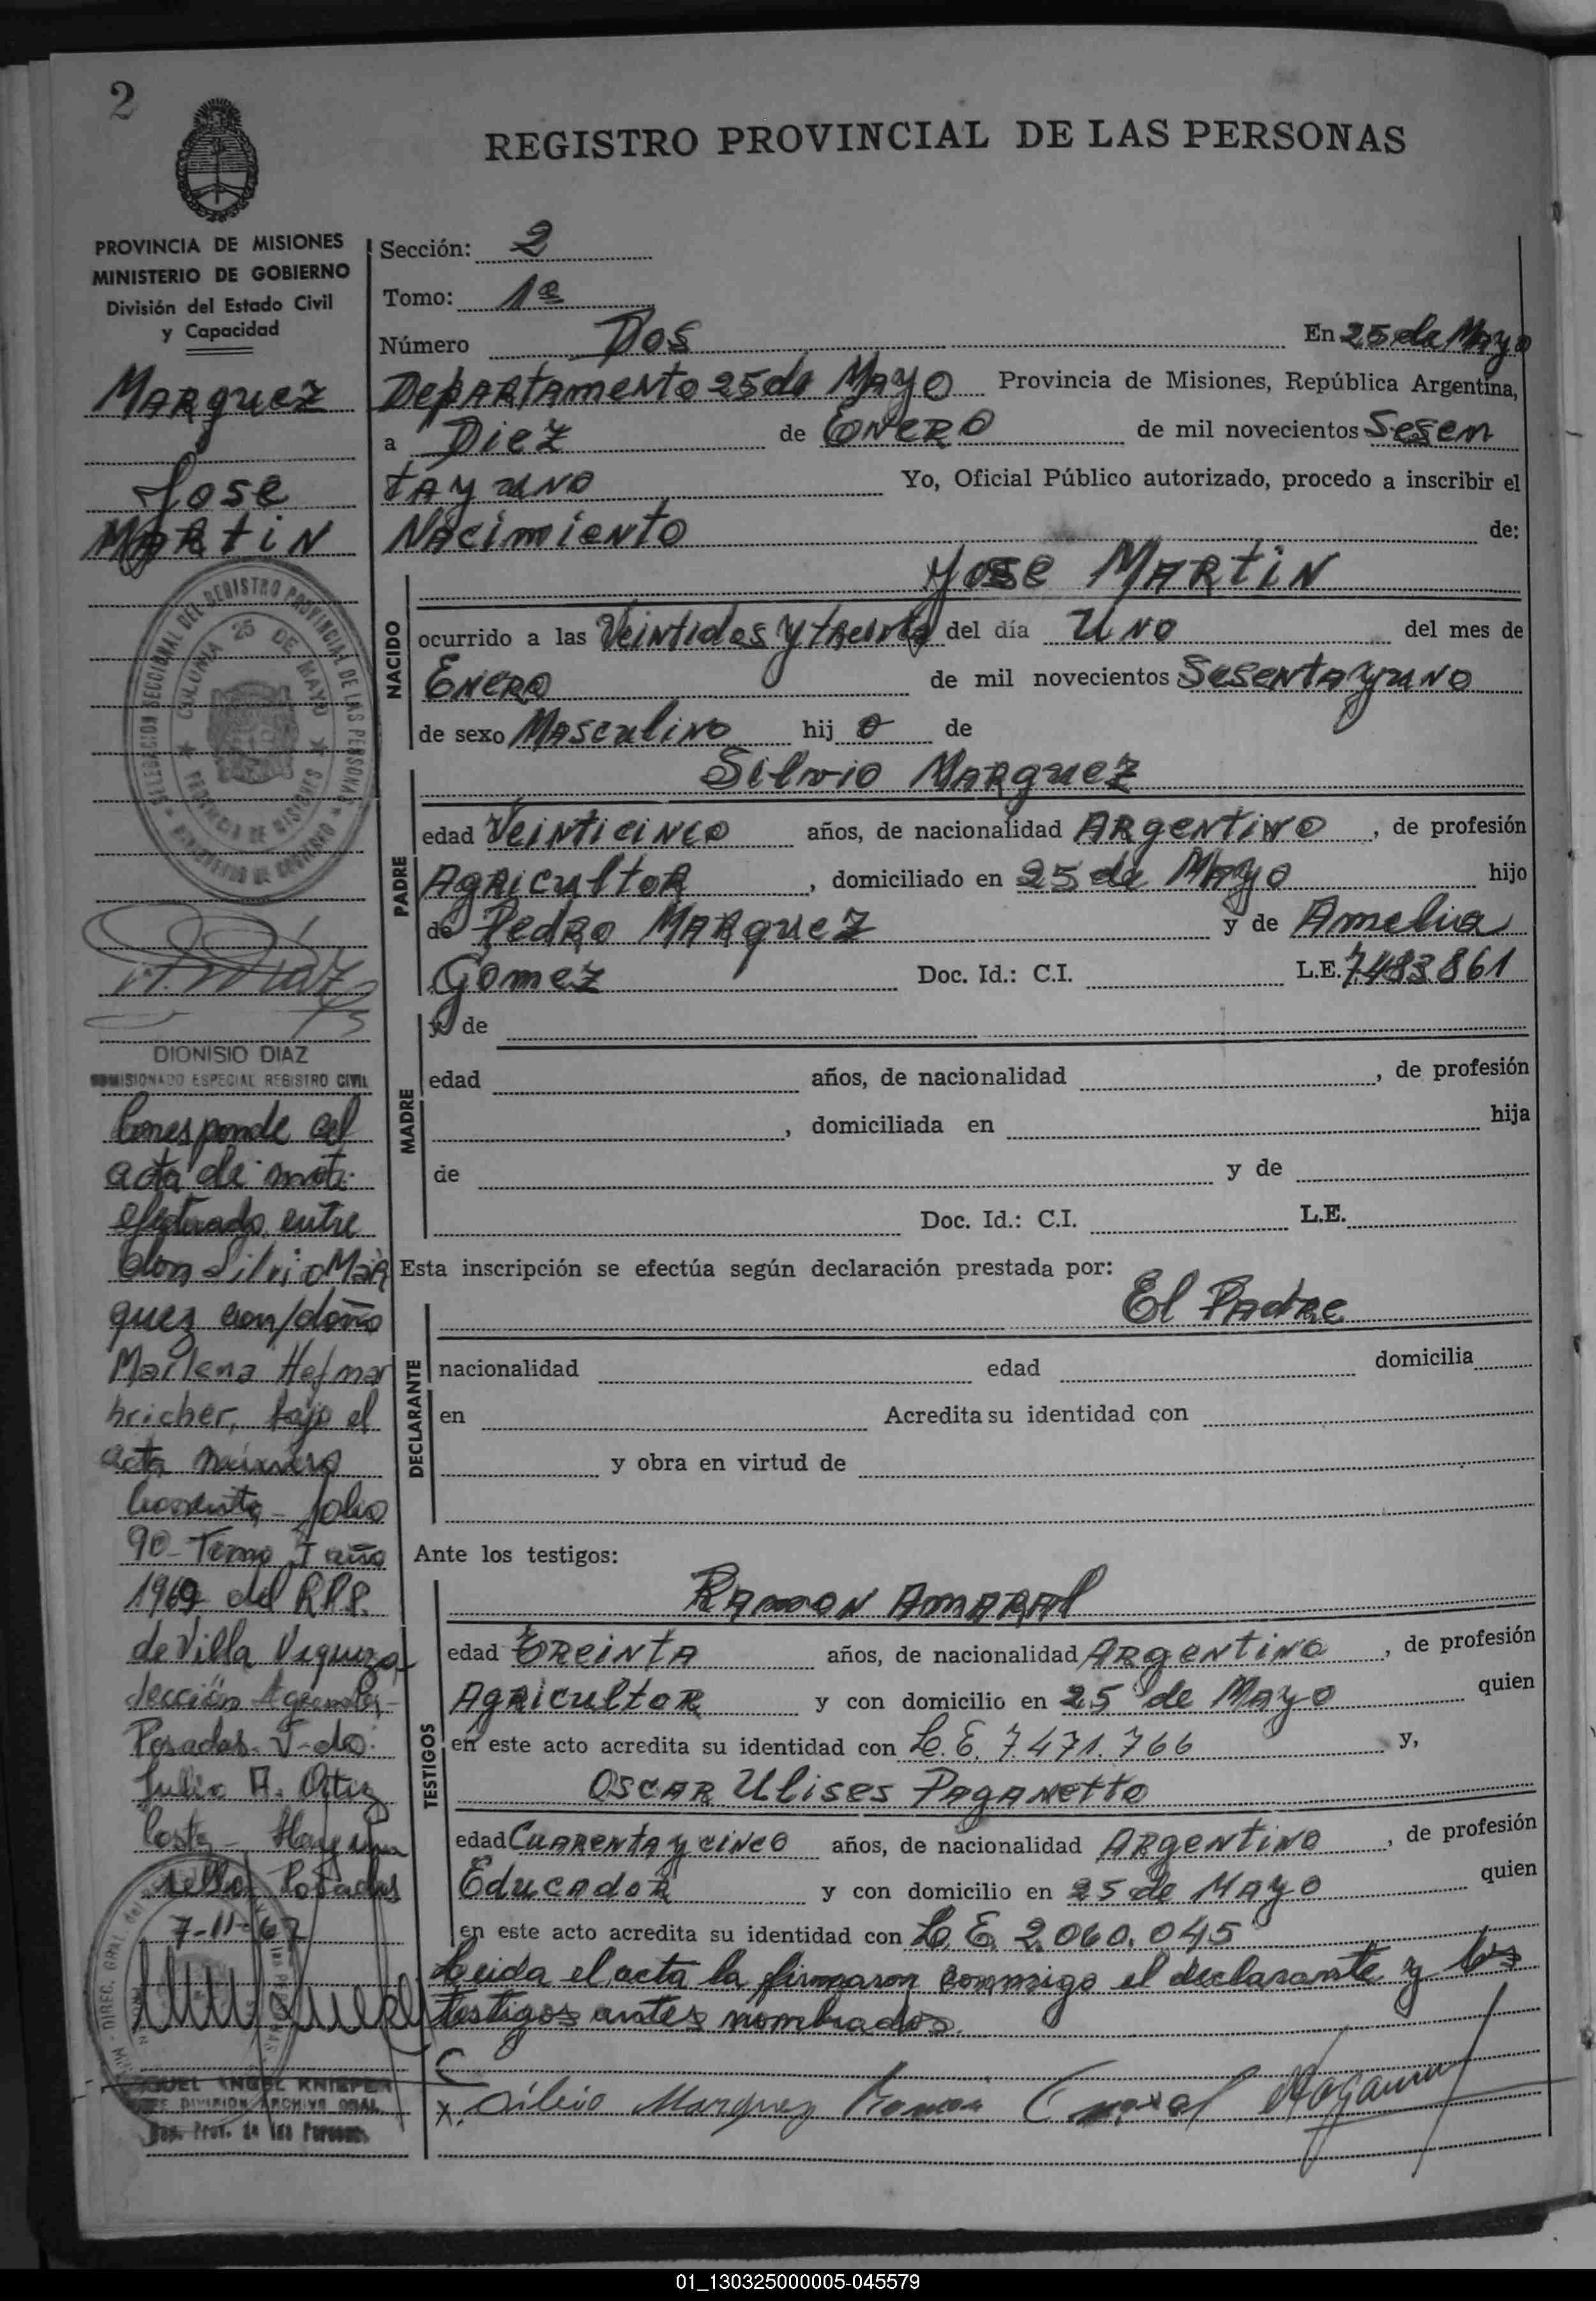 2
REGISTRO PROVINCIAL DE LAS PERSONAS
PROVINCIA DE MISIONES
MINISTERIO DE GOBIERNO
División del Estado Civil
y Capacidad
Marquez
Jose
Martin
DELEGACION SECCIONAL DEL REGISTRO PROVINCIAL DE LAS PERSONAS
COLONIA 25 DE MAYO
PROVINCIA DE MISIONES
MINISTERIO DE GOBIERNO
DIONISIO DIAZ
COMISIONADO ESPECIAL REGISTRO CIVIL
Corresponde al
acta de
efectuado entre
don Silvio Mar
quez con/doña
Marlena
bricher, bajo el
acta número
folio
90 - Tomo I año
1969 del R.P.P.
de Villa
Sección
Posadas
Julio A. Ortiz
Hay un
sello Posadas
MIGUEL ANGEL KNIEPER
JEFE DIVISION ARCHIVO GRAL.
Reg. Prov. de las Personas
Sección: 2
Tomo: 1º
Número Dos En 25 de Mayo
Departamento 25 de Mayo Provincia de Misiones, República Argentina,
a Diez de Enero de mil novecientos Sesen
ta y uno Yo, Oficial Público autorizado, procedo a inscribir el
Nacimiento de:
NACIDO
Jose Martin
ocurrido a las Veintidos y treinta del día Uno del mes de
Enero de mil novecientos Sesenta y uno
de sexo Masculino hij o de
PADRE
Silvio Marquez
edad Veinticinco años, de nacionalidad Argentino, de profesión
Agricultor, domiciliado en 25 de Mayo hijo
de Pedro Marquez y de Amelia
Gomez Doc. Id.: C.I. L.E. 7483861
MADRE
y de
edad años, de nacionalidad , de profesión
, domiciliada en hija
de y de
Doc. Id.: C.I. L.E.
Esta inscripción se efectúa según declaración prestada por:
El Padre
DECLARANTE
nacionalidad edad domicilia
en Acredita su identidad con
y obra en virtud de
Ante los testigos:
TESTIGOS
Ramon Amaral
edad Treinta años, de nacionalidad Argentino, de profesión
Agricultor y con domicilio en 25 de Mayo quien
en este acto acredita su identidad con L.E. 7.471.766 y,
Oscar Ulises Paganetto
edad Cuarenta y cinco años, de nacionalidad Argentino, de profesión
Educador y con domicilio en 25 de Mayo quien
en este acto acredita su identidad con L.E. 2.060.045
Leida el acta la firmaron conmigo el declarante y los
testigos antes nombrados.
x. Silvio Marquez Ramon Amaral
01_130325000005-045579